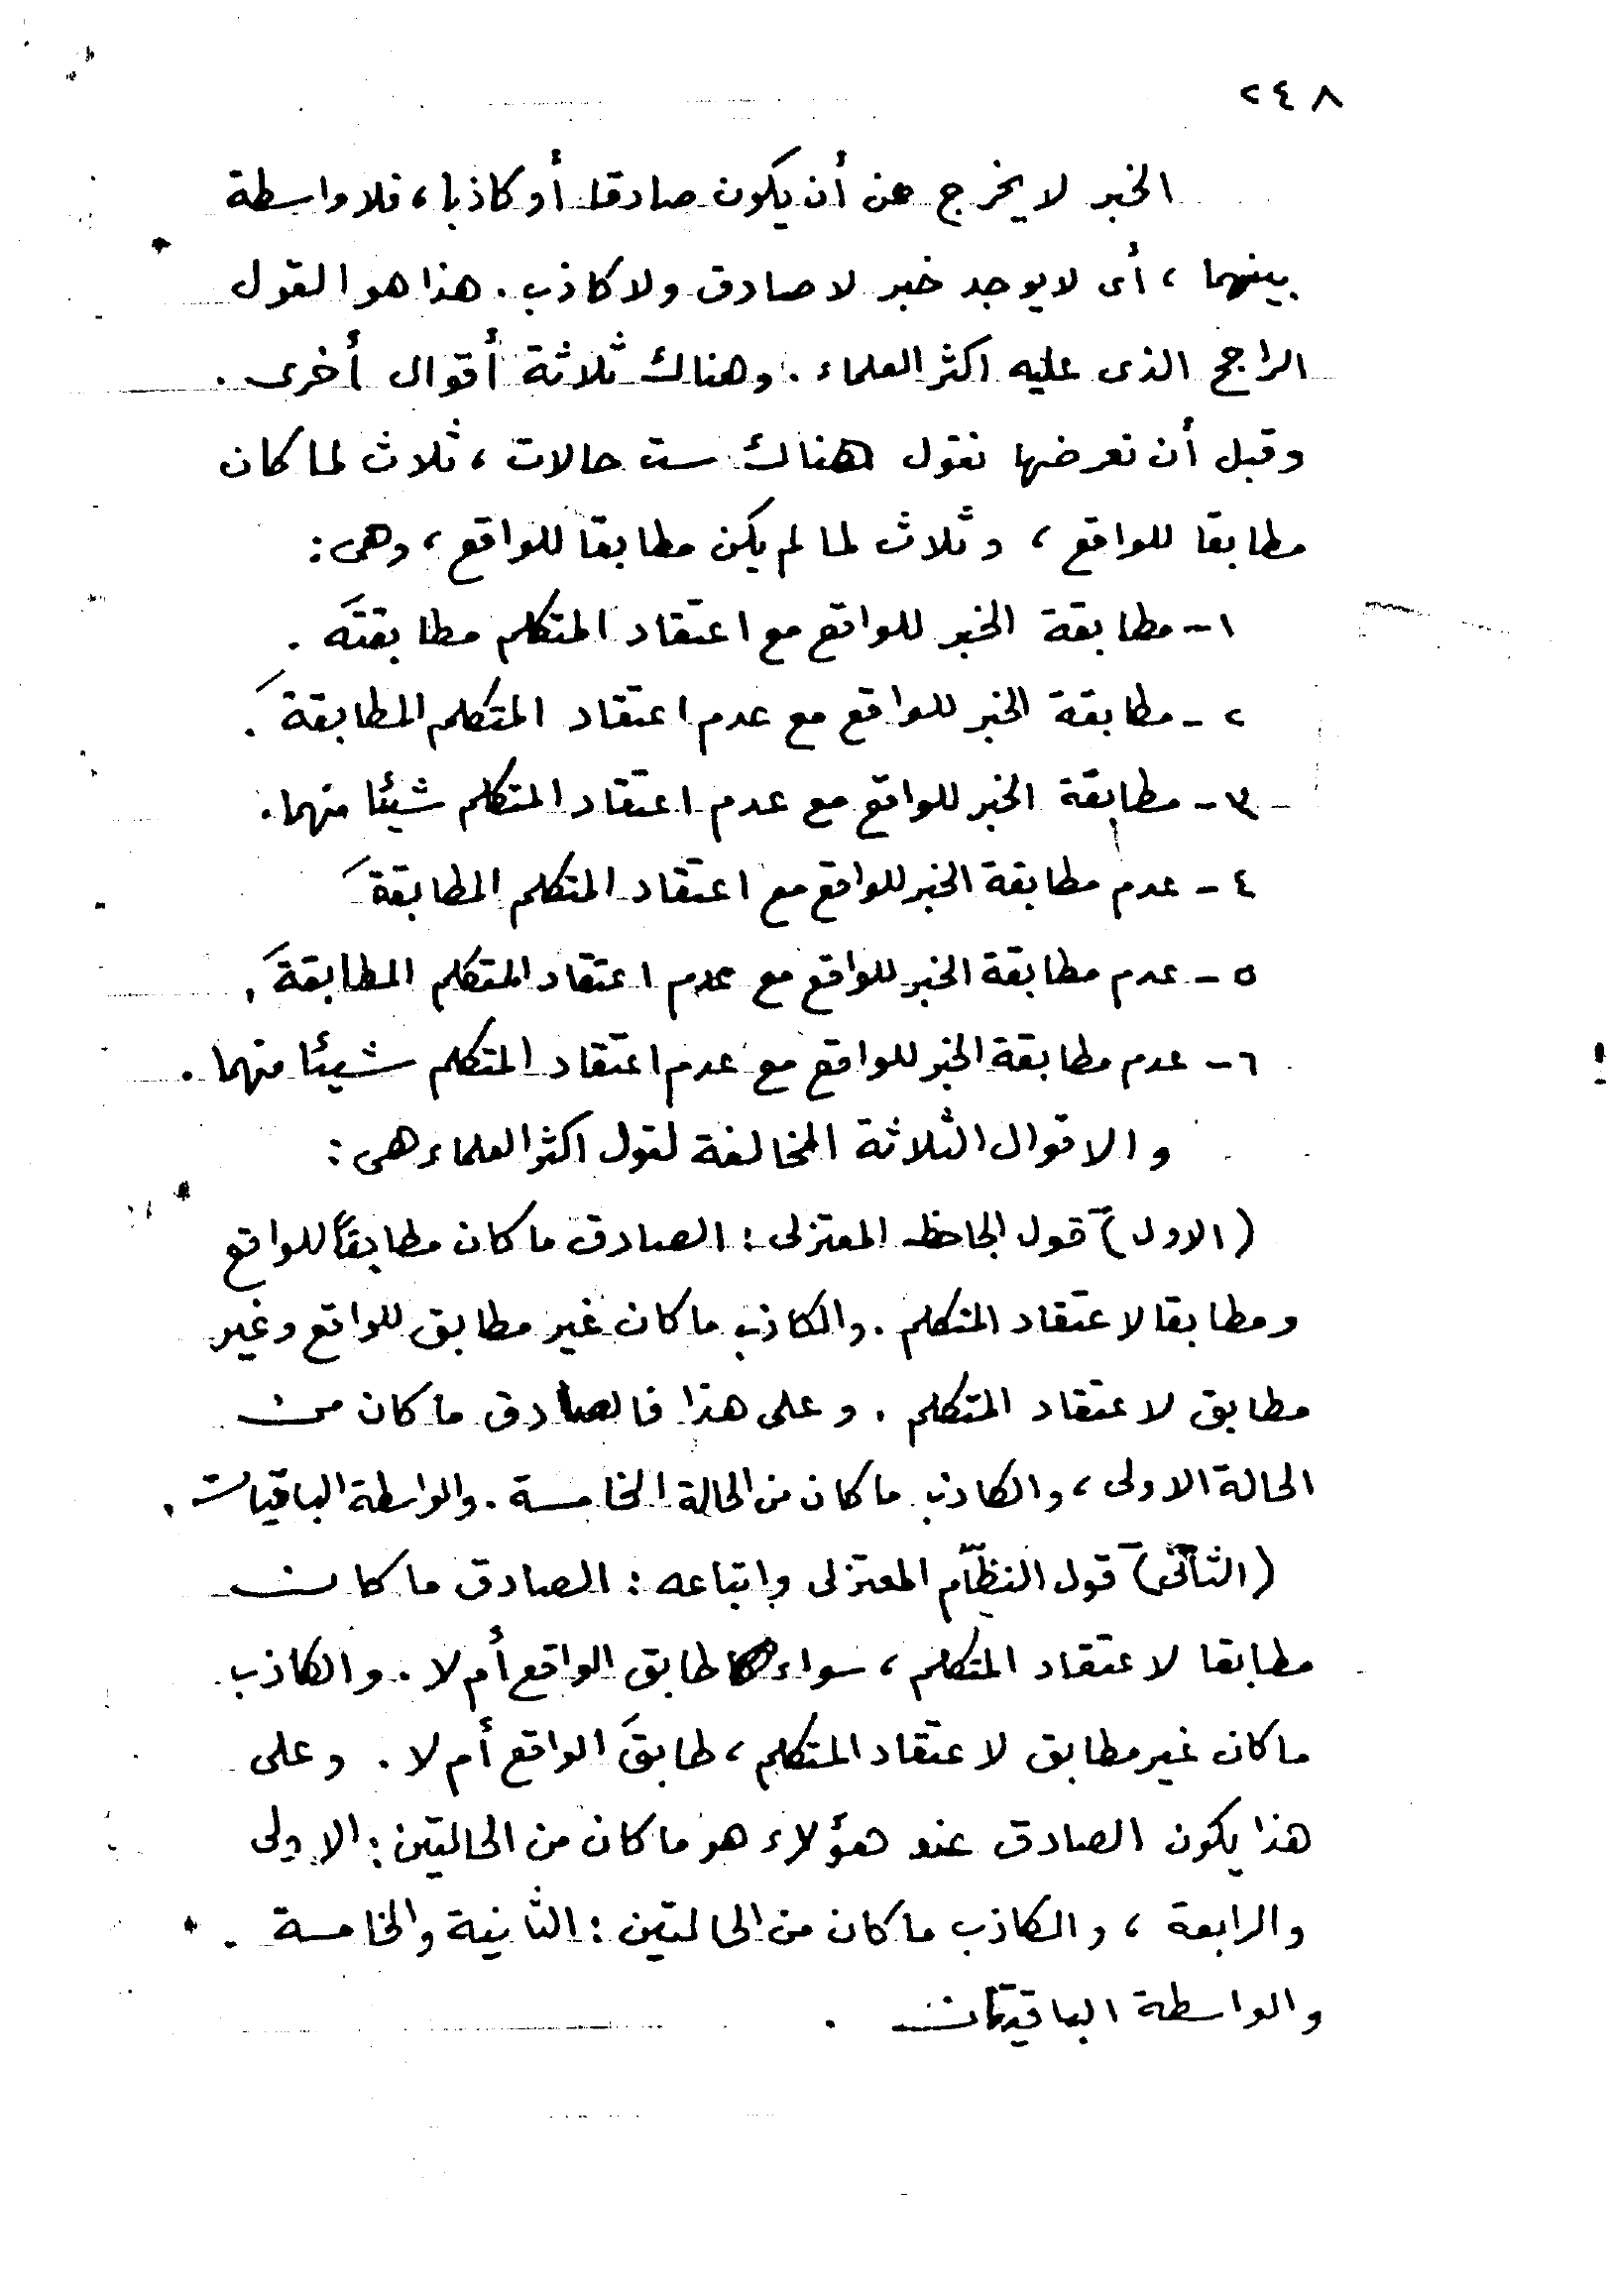 ٢٤٨
الخبر لا يخرج عن أن يكون صادقا أو كاذبا، فلا واسطة
بينهما، أى لا يوجد خبر لا صادق ولا كاذب. هذا هو القول
الراجح الذى عليه اكثر العلماء. وهناك ثلاثة أقوال أخرى.
وقبل أن نعرضها نقول هناك ست حالات، ثلاث لما كان
مطابقا للواقع، وثلاث لما لم يكن مطابقا للواقع، وهى:
١- مطابقة الخبر للواقع مع اعتقاد المتكلم مطابقتَه.
٢- مطابقة الخبر للواقع مع عدم اعتقاد المتكلم المطابقةَ.
٣- مطابقة الخبر للواقع مع عدم اعتقاد المتكلم شيئا منهما.
٤- عدم مطابقة الخبر للواقع مع اعتقاد المتكلم المطابقةَ
٥- عدم مطابقة الخبر للواقع مع عدم اعتقاد المتكلم المطابقةَ.
٦- عدم مطابقة الخبر للواقع مع عدم اعتقاد المتكلم شيئا منهما.
والاقوال الثلاثة المخالفة لقول اكثر العلماء هى:
(الاول) قول الجاحظ المعتزلى: الصادق ما كان مطابقاً للواقع
ومطابقا لاعتقاد المتكلم. والكاذب ما كان غير مطابق للواقع وغير
مطابق لاعتقاد المتكلم. وعلى هذا فالصادق ما كان من
الحالة الاولى، والكاذب ما كان من الحالة الخامسة. والواسطة الباقيات.
(الثانى) قول النظّام المعتزلى واتباعه: الصادق ما كان
مطابقا لاعتقاد المتكلم، سواء طابق الواقع أم لا. والكاذب
ما كان غير مطابق لاعتقاد المتكلم، طابقَ الواقع أم لا. وعلى
هذا يكون الصادق عند هؤلاء هو ما كان من الحالتين: الاولى
والرابعة، والكاذب ما كان من الحالتين: الثانية والخامسة.
والواسطة الباقيتان.